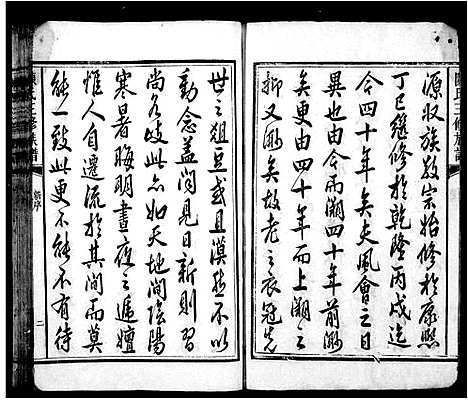 源收族敬宗始修於康熙
丁巳繼修於乾隆丙戌迄
今四十年矣夫風會之日
異也由今而溯四十年前渺
矣更由四十年而上溯之
抑又渺矣故老之衣冠先
世之俎豆或且漠然不以
動念蓋聞見日新則習
尚各歧此亦如天地間陰陽
寒暑晦明晝夜之遞嬗
惟人自遷流於其間而莫
能一致此更不能不有待
陳氏三修族譜
新序
二